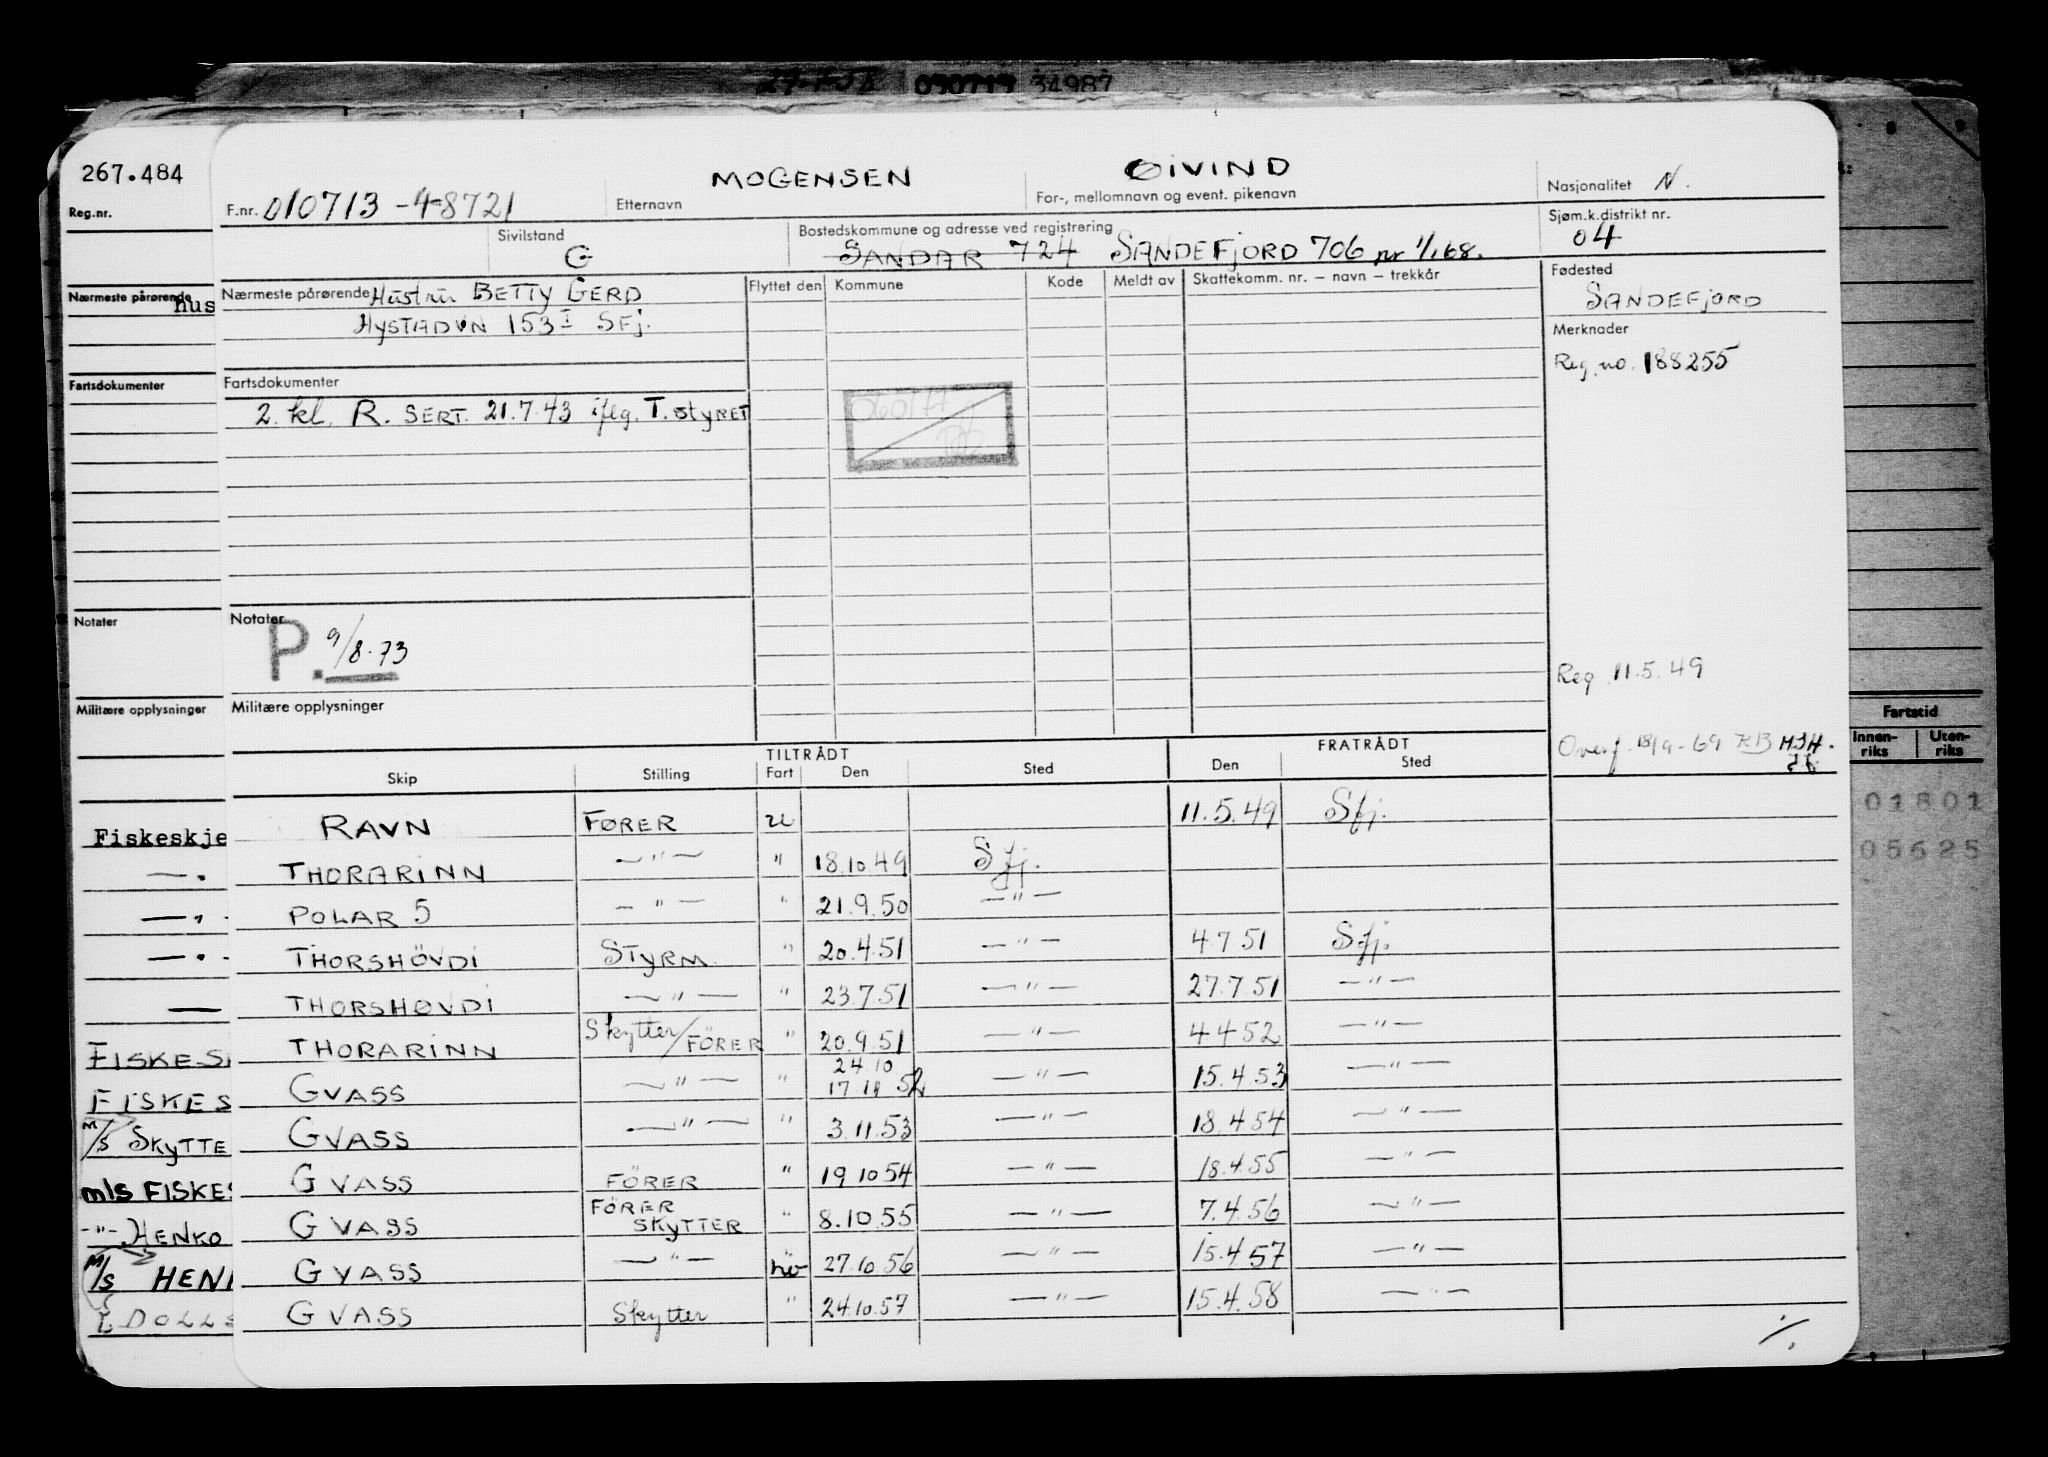 29.7.58 050713 34987
267.484
Reg.nr.
Nærmeste pårørende
hus
Fartsdokumenter
Notater
Militære opplysninger
Fiskeskje
— " -
— " -
— " -
—
FISKES
FISKES
M/S SKYTTE
m/s FISKES
-"- HENKO
M/S HEN
MOGENSEN ØIVIND
F.nr. 010713-48721 Etternavn For-, mellomnavn og event. pikenavn Nasjonalitet N.
Sivilstand G
Bostedskommune og adresse ved registrering
SANDAR 724 SANDEFJORD 706 nr 1/1.68.
Sjøm.k.distrikt nr.
04
Nærmeste pårørende Hustru BETTY GERD
HYSTADVN 153 I SFJ.
Flyttet den Kommune Kode Meldt av Skattekomm. nr. – navn – trekkår
Fødested
SANDEFJORD
Merknader
Reg. no. 188255
Fartsdokumenter
2. kl. R. SERT. 21.7.43 iflg. T. STYRET
Notater
P. 9/8-73
Militære opplysninger
Reg 11.5.49
Overf. 18/9-69 KB
TILTRÅDT FRATRÅDT
Skip Stilling Fart Den Sted Den Sted
RAVN FØRER u 11.5.49 Sfj.
THORARINN — " — " 18.10.49 Sfj.
POLAR 5 — " — " 21.9.50 — " —
THORSHÖVDI STYRM. " 20.4.51 — " — 4.7.51 Sfj.
THORSHØVDI — " — " 23.7.51 — " — 27.7.51 — " —
THORARINN Skytter/FÖRER " 20.9.51 — " — 4.4.52 — " —
24.10
GVASS — " — " 17.11.52 — " — 15.4.53 — " —
GVASS — " — " 3.11.53 — " — 18.4.54 — " —
GVASS FÖRER " 19.10.54 — " — 18.4.55 — " —
GVASS FÖRER SKYTTER " 8.10.55 — " — 7.4.56 — " —
GVASS — " — hv 27.10.56 — " — 15.4.57 — " —
GVASS Skytter " 24.10.57 — " — 15.4.58 — " —
Fartstid
Innen-riks Uten-riks
01801
05625